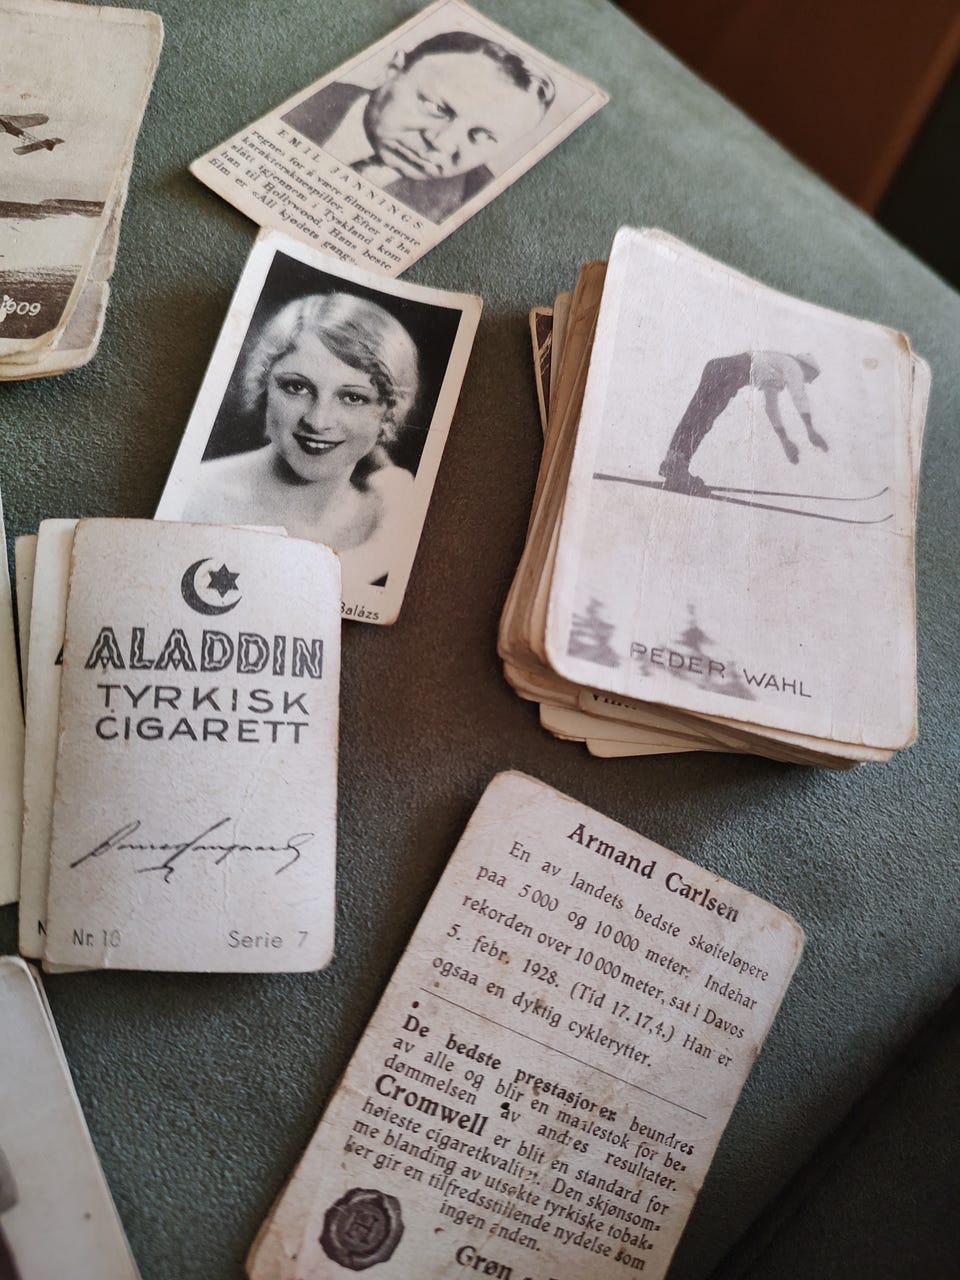 1909
EMIL JANNINGS
regnes for å være filmens største
karakterskuespiller. Efter å ha
slått igjennem i Tyskland kom
han til Hollywood. Hans beste
film er «All kjødets gang».
Balázs
PEDER WAHL
ALADDIN
TYRKISK
CIGARETT
Nr. 10 Serie 7
Armand Carlsen
En av landets bedste skøiteløpere
paa 5000 og 10000 meter. Indehar
rekorden over 10000 meter, sat i Davos
5. febr. 1928. (Tid 17.17,4.) Han er
ogsaa en dyktig cyklerytter.
De bedste prestasjoner beundres
av alle og blir en maalestok for be=
dømmelsen av andres resultater.
Cromwell er blit en standard for
høieste cigaretkvalitet. Den skjønsom=
me blanding av utsøkte tyrkiske tobak=
ker gir en tilfredsstillende nydelse som
ingen anden.
H
Grøn